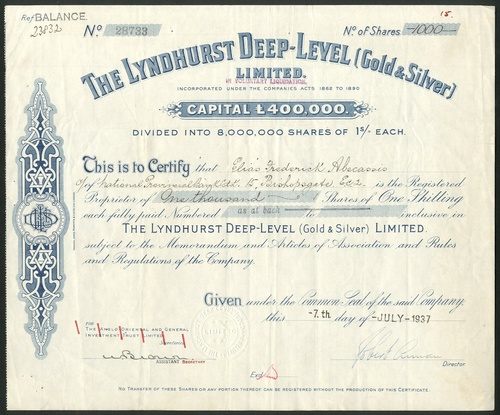 Ref BALANCE
23832
15.
Nº 28733
Nº of Shares -1000-
THE LYNDHURST DEEP-LEVEL (Gold & Silver)
LIMITED.
IN VOLUNTARY LIQUIDATION.
INCORPORATED UNDER THE COMPANIES ACTS 1862 TO 1890
CAPITAL £400,000.
DIVIDED INTO 8,000,000 SHARES OF 1s/- EACH.
This is to Certify that Elias Frederick Abecassis
c/o National Provincial Bank Ltd. 15, Bishopsgate E.C.2. is the Registered
Proprietor of One thousand Shares of One Shilling
each fully paid Numbered as at back to inclusive in
THE LYNDHURST DEEP-LEVEL (Gold & Silver) LIMITED.
subject to the Memorandum and Articles of Association and Rules
and Regulations of the Company.
Given under the Common Seal of the said Company
this -7.th day of -JULY-1937
FOR
THE ANGLO-ORIENTAL AND GENERAL
INVESTMENT TRUST LIMITED
Secretaries
ASSISTANT SECRETARY
Director
Exd
NO TRANSFER OF THESE SHARES OR ANY PORTION THEREOF CAN BE REGISTERED WITHOUT THE PRODUCTION OF THIS CERTIFICATE.